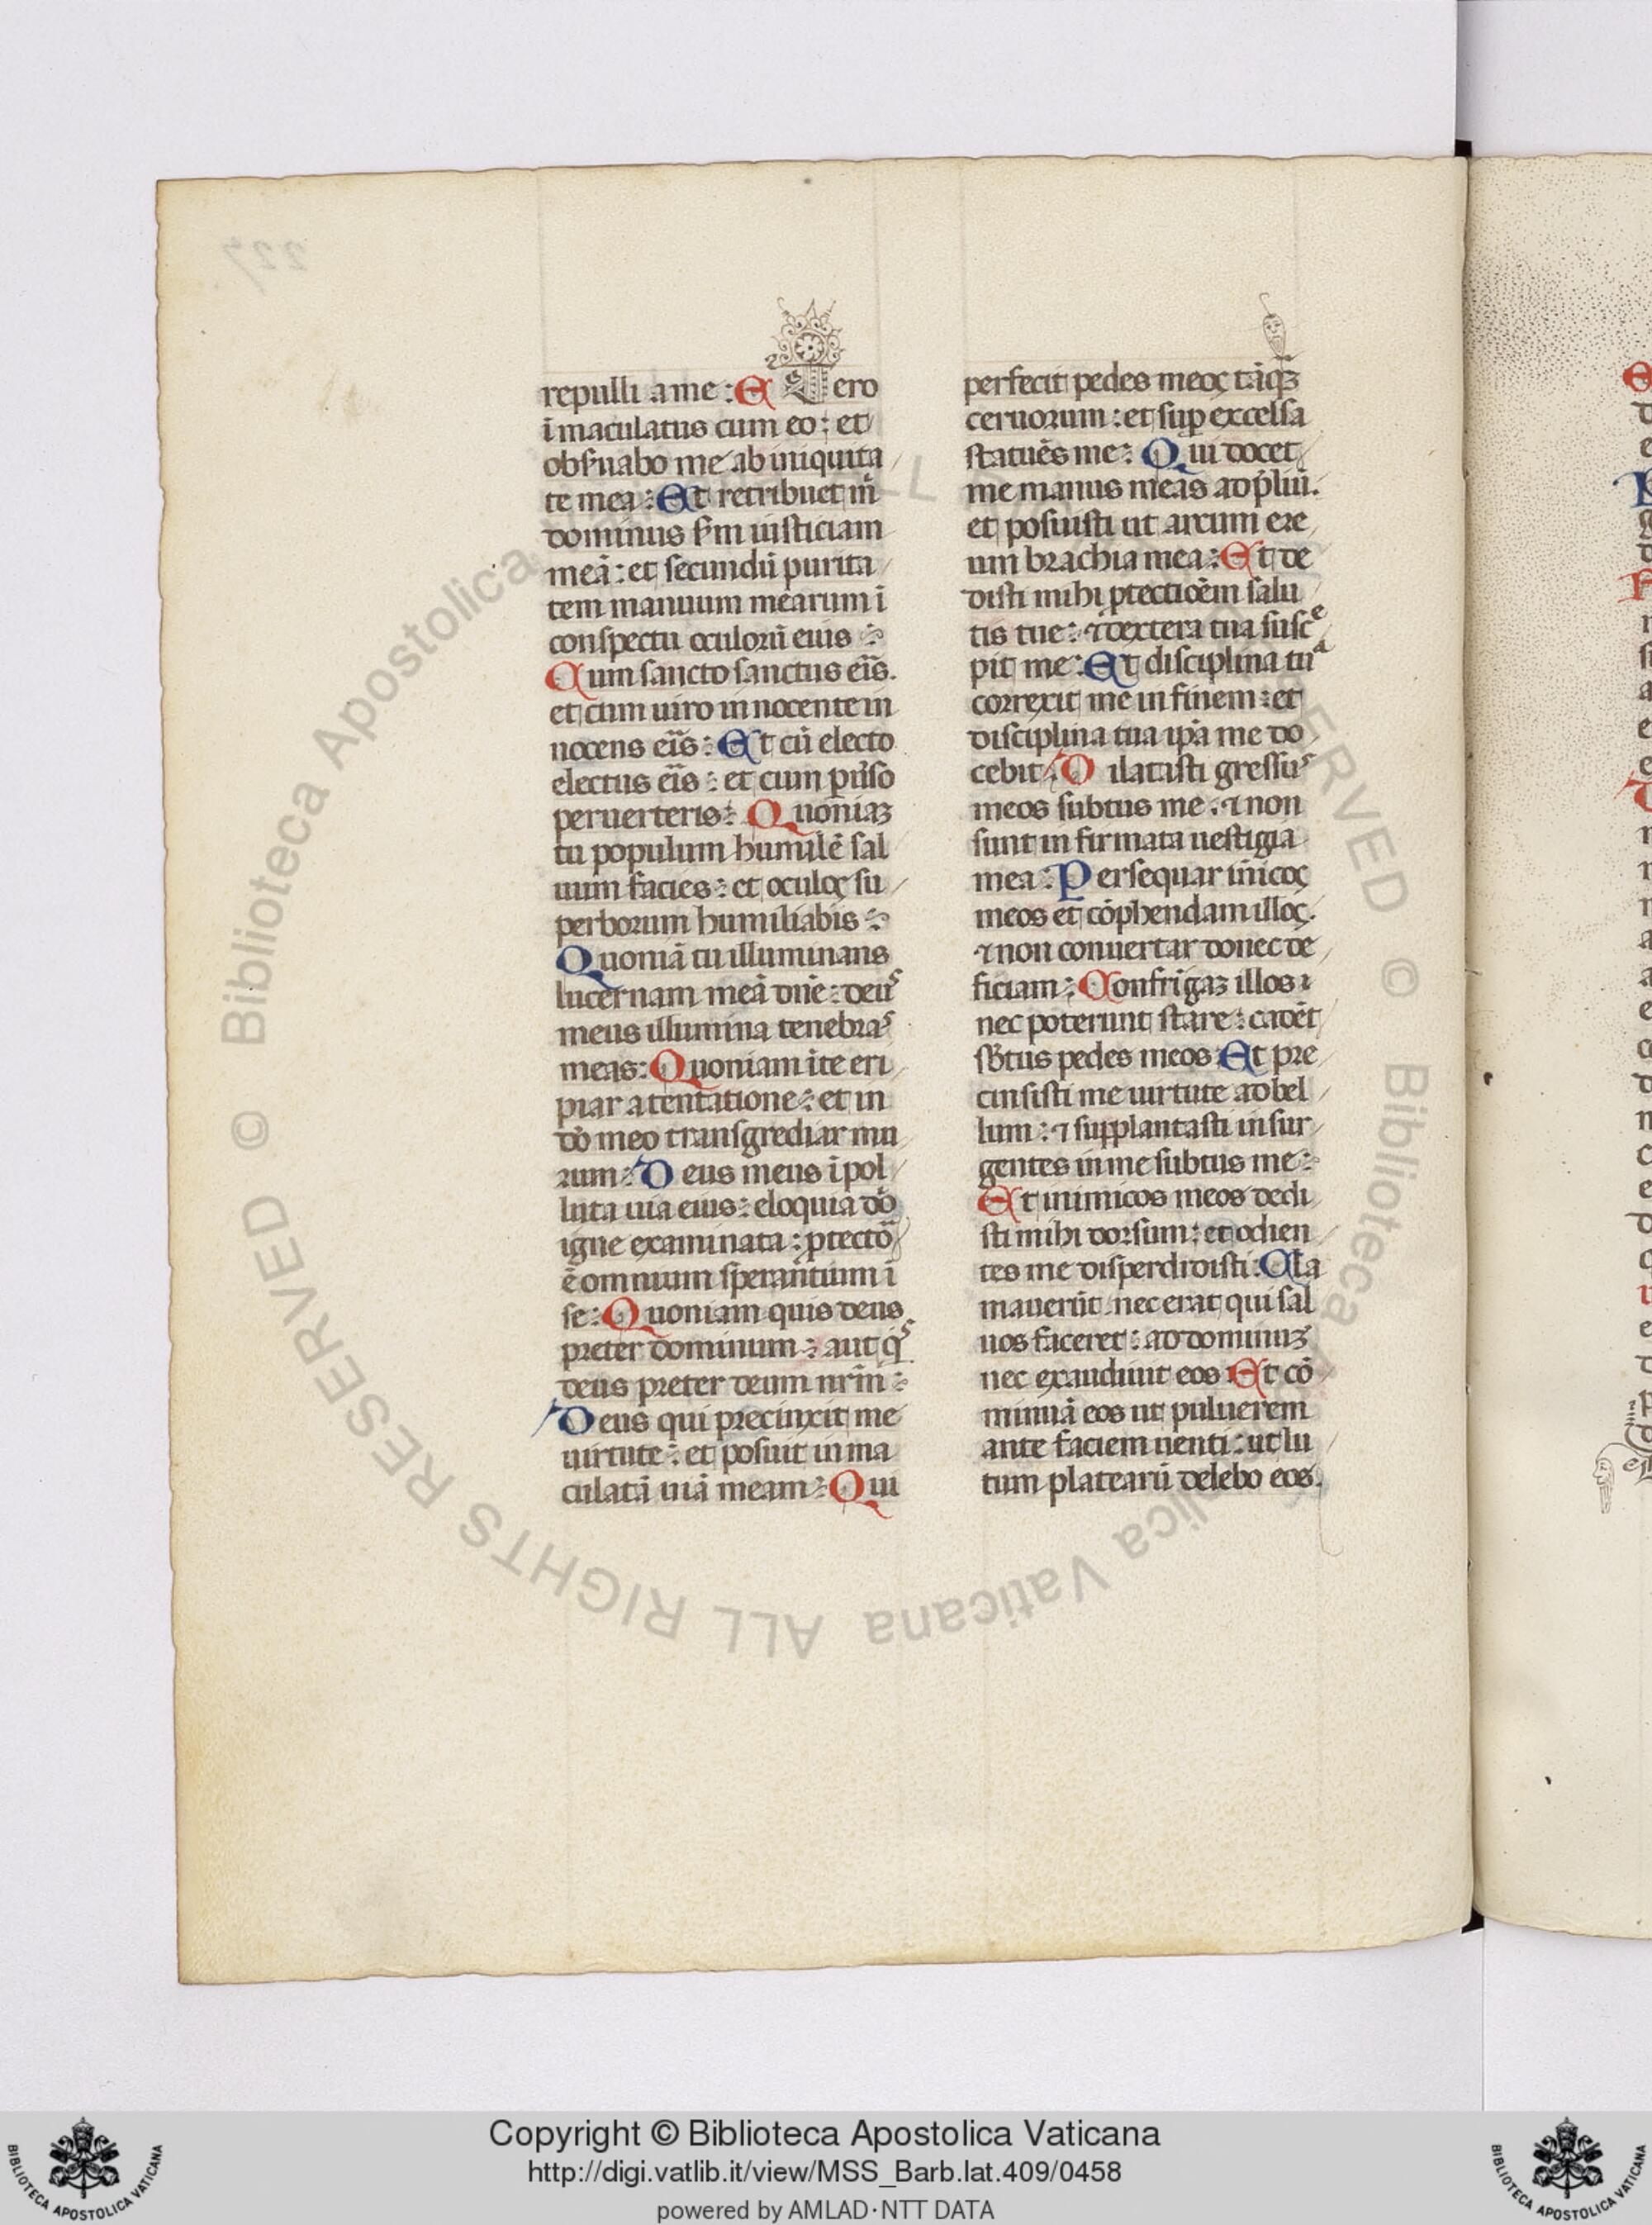 repulli a me : Et Ero
īmaculatus cum eo : et
obẜuabo me ab iniquita
te mea : Et retribuet m̄
dominus ẜm iusticiam
meā : et secundū purita
tem manuum mearum ī
conspectu oculorū eius :
Cum sancto sanctus eīs.
et cum uiro innocente in
nocens eīs : Et cū electo
electus eīs : et cum ꝑuſo
peruerteris : Quoniaꝫ
tu populum humilē sal
uum facies : et oculoς su
perborum humiliabis :
Quoniā tu illuminans
lucernam meā dn̄e : deus
meus illumina tenebras
meas : Quoniam ī te eri
piar a tentatione : et in
dō meo transgrediar mu
rum : Deus meus īpol
luta uia eius : eloquia dō
igne examinata : ꝓtectō
ē omnium sperantium ī
se : Quoniam quis deus
preter dominum : aut qs
deus preter deum nr̄m :
Deus qui precinxit me
uirtute : et posuit inma
culatā uiā meam : Qui
perfecit pedes meoς tāqꝫ
ceruorum : et suꝑ excelsa
statuēs me : Qui docet
me manus meas ad p̄liū.
et posuisti ut arcum ere
um brachia mea : Et de
disti mihi ꝓtectiōem salu
tis tue : ⁊ dextera tua susce
pit me : Et disciplina tua
correxit me in finem : et
disciplina tua ip̄a me do
cebit : Dilatasti gressus
meos subtus me : ⁊ non
sunt infirmata uestigia
mea : Persequar inīcoς
meos et cōp̄hendam illoς.
⁊ non conuertar donec de
ficiam : Confrīgaꝫ illos ⁊
nec poterunt stare : cadēt
sƀtus pedes meos Et pre
cinsisti me uirtute ad bel
lum : ⁊ supplantasti insur
gentes in me subtus me :
Et inimicos meos dedi
sti mihi dorsum : et odien
tes me disperdidisti : Cla
mauerūt nec erat qui sal
uos faceret : ad dominuꝫ
nec exaudiuit eos Et cō
minuā eos ut puluerem
ante faciem uenti : ut lu
tum platearū delebo eos.
Copyright © Biblioteca Apostolica Vaticana
http://digi.vatlib.it/view/MSS_Barb.lat.409/0458
powered by AMLAD·NTT DATA
BIBLIOTECA APOSTOLICA VATICANA
BIBLIOTECA APOSTOLICA VATICANA
© Biblioteca Apostolica Vaticana ALL RIGHTS RESERVED